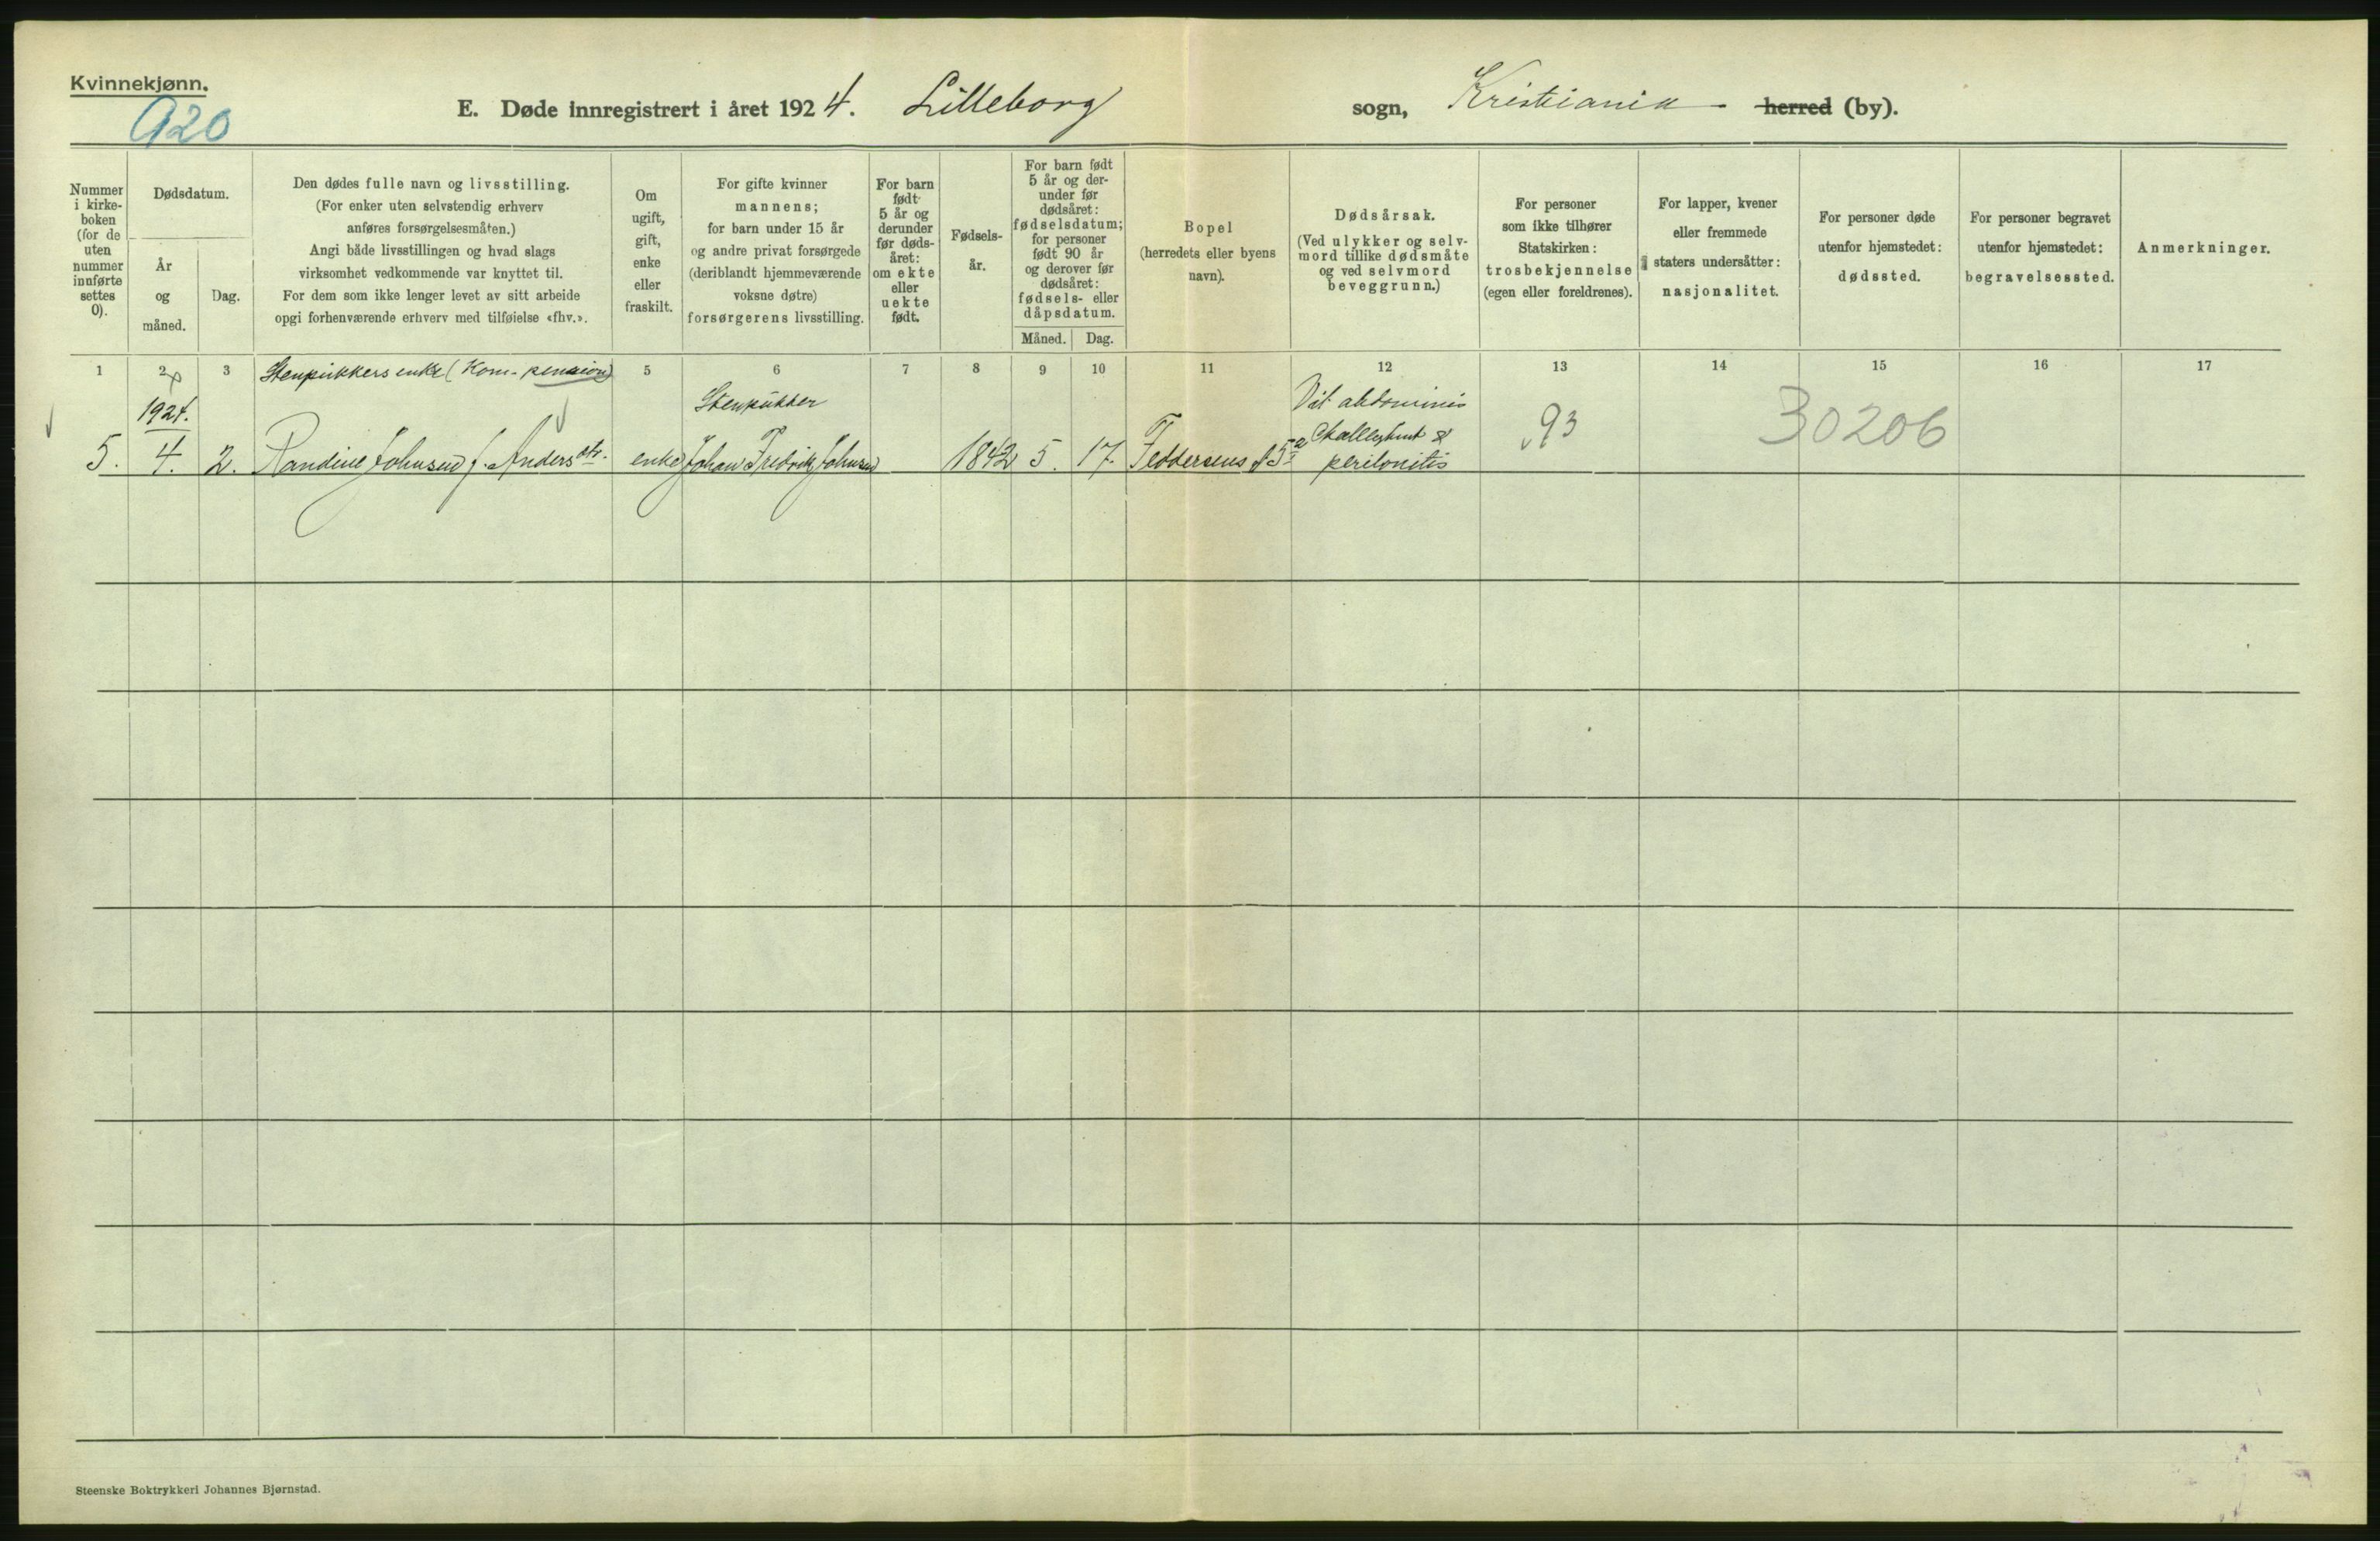 Kvinnekjønn.
920
E. Døde innregistrert i året 1924. Lilleborg sogn, Kristiania herred (by).
Nummer
i kirke-
boken
(for de
uten
nummer
innførte
settes
0).
Dødsdatum.
År
og
måned.
Dag.
Den dødes fulle navn og livsstilling.
(For enker uten selvstendig erhverv
anføres forsørgelsesmåten.)
Angi både livsstillingen og hvad slags
virksomhet vedkommende var knyttet til.
For dem som ikke lenger levet av sitt arbeide
opgi forhenværende erhverv med tilføielse «fhv.».
Om
ugift,
gift,
enke
eller
fraskilt.
For gifte kvinner
mannens;
for barn under 15 år
og andre privat forsørgede
(deriblandt hjemmeværende
voksne døtre)
forsørgerens livsstilling.
For barn
født
5 år og
derunder
før døds-
året:
om ekte
eller
uekte
født.
Fødsels-
år.
For barn født
5 år og der-
under før
dødsåret:
fødselsdatum;
for personer
født 90 år
og derover før
dødsåret:
fødsels- eller
dåpsdatum.
Måned. Dag.
Bopel
(herredets eller byens
navn).
Dødsårsak.
(Ved ulykker og selv-
mord tillike dødsmåte
og ved selvmord
beveggrunn.)
For personer
som ikke tilhører
Statskirken:
trosbekjennelse
(egen eller foreldrenes).
For lapper, kvener
eller fremmede
staters undersåtter:
nasjonalitet.
For personer døde
utenfor hjemstedet:
dødssted.
For personer begravet
utenfor hjemstedet:
begravelsessted.
Anmerkninger.
1 2 3 5 6 7 8 9 10 11 12 13 14 15 16 17
Stenpukkers enke (Kom. pension)
1924.
Stenpukker
abdominis
93
30206
5. 4. 2. Randine Johnsen f. Andersdtr. enke Johan Fredrik Johnsen 1842 5. 17. Feddersens peritonitis
Steenske Boktrykkeri Johannes Bjørnstad.